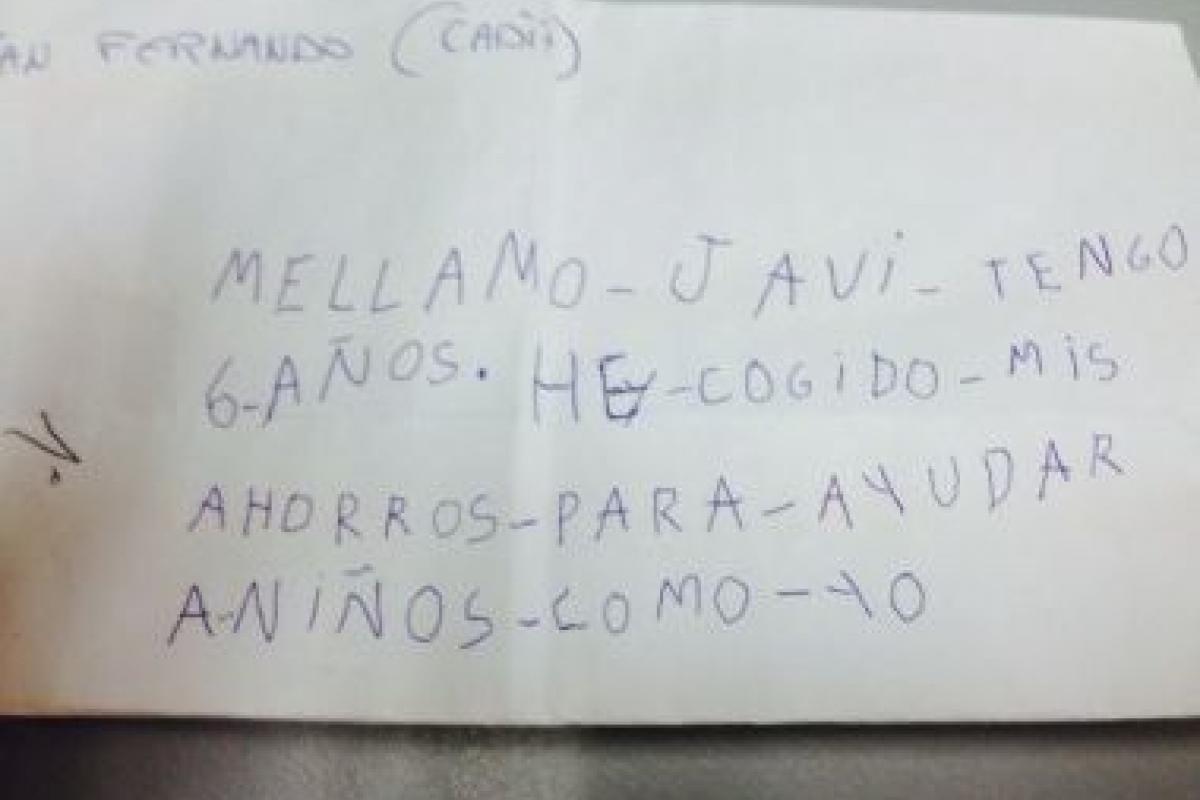 AN FERNANDO (CADIZ)
MELLAMO-JAVi-TENGO
6-AÑOS. HE-COGiDO-MiS
AHORROS-PARA-AYUDAR
A-NiÑOS-COMO-YO